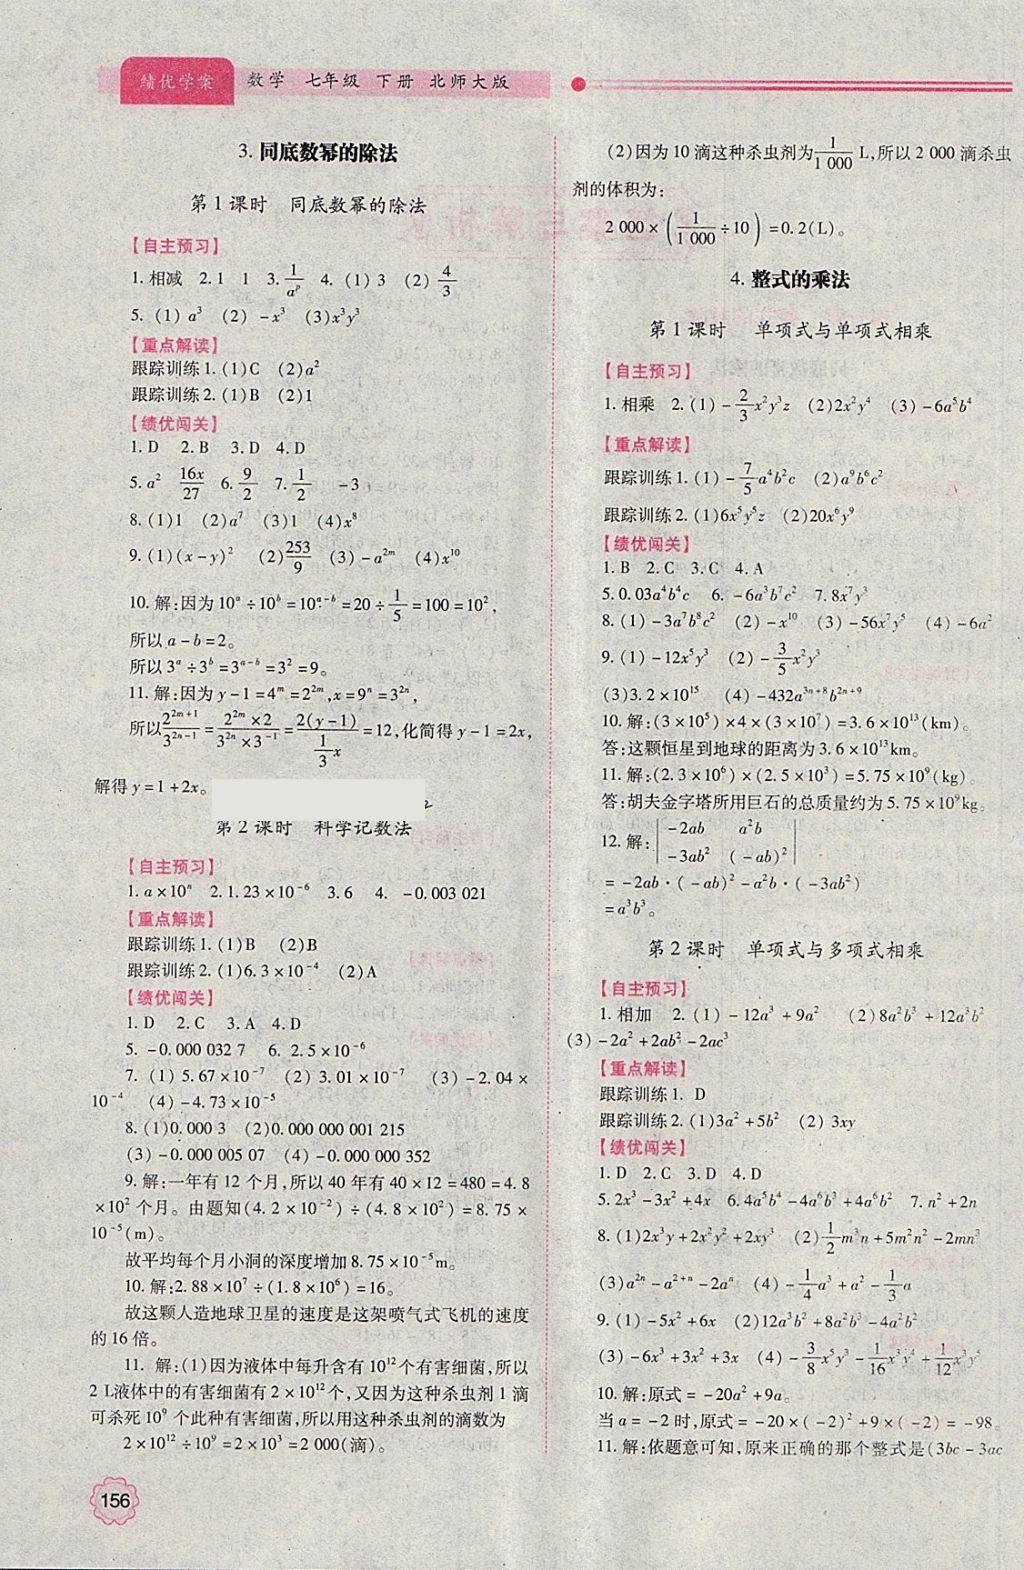 绩优学案 数学 七年级 下册 北师大版
3. 同底数幂的除法
第 1 课时 同底数幂的除法
【自主预习】
1. 相减 2. 1 1 3. 1/a^p 4. (1) 3 (2) 4/3
5. (1) a³ (2) －x³ (3)x³y³
【重点解读】
跟踪训练 1. (1)C (2)a²
跟踪训练 2. (1)B (2)1
【绩优闯关】
1. D 2. B 3. D 4. D
5. a² 16x/27 6. 9/2 7. 1/2 －3
8. (1)1 (2)a⁷ (3)1 (4)x⁸
9. (1)(x－y)² (2)253/9 (3)－a^{2m} (4)x¹⁰
10. 解:因为 10^a÷10^b＝10^{a－b}＝20÷1/5＝100＝10²,
所以 a－b＝2。
所以 3^a÷3^b＝3^{a－b}＝3²＝9。
11. 解:因为 y－1＝4^m＝2^{2m},x＝9^n＝3^{2n},
所以2^{2m＋1}/3^{2n－1}＝(2^{2m}×2)/(3^{2n}×3^{－1})＝2(y－1)/(1/3 x)＝12,化简得 y－1＝2x,
解得 y＝1＋2x。
第 2 课时 科学记数法
【自主预习】
1. a×10^n 2. 1.23×10^{－6} 3. 6 4. －0.003 021
【重点解读】
跟踪训练 1. (1)B (2)B
跟踪训练 2. (1)6.3×10^{－4} (2)A
【绩优闯关】
1. D 2. C 3. A 4. D
5. －0.000 032 7 6. 2.5×10^{－6}
7. (1) 5.67×10^{－7} (2) 3.01×10^{－7} (3)－2.04×
10^{－4} (4)－4.73×10^{－5}
8. (1)0.000 3 (2)0.000 000 001 215
(3)－0.000 005 07 (4)－0.000 000 352
9. 解:一年有 12 个月,所以 40 年有 40×12＝480＝4.8
×10² 个月。由题知(4.2×10^{－2})÷(4.8×10²)＝8.75×
10^{－5}(m)。
故平均每个月小洞的深度增加 8.75×10^{－5}m。
10. 解:2.88×10⁷÷(1.8×10⁶)＝16。
故这颗人造地球卫星的速度是这架喷气式飞机的速度
的 16 倍。
11. 解:(1)因为液体中每升含有 10¹²个有害细菌,所以
2 L液体中的有害细菌有 2×10¹²个,又因为这种杀虫剂 1 滴
可杀死 10⁹ 个此种有害细菌,所以用这种杀虫剂的滴数为
2×10¹²÷10⁹＝2×10³＝2 000(滴)。
156
(2)因为 10 滴这种杀虫剂为1/1 000 L,所以 2 000 滴杀虫
剂的体积为:
2 000×(1/1 000÷10)＝0.2(L)。
4. 整式的乘法
第 1 课时 单项式与单项式相乘
【自主预习】
1. 相乘 2. (1)－2/3x²y³z (2)2x²y⁴ (3)－6a⁵b⁴
【重点解读】
跟踪训练 1. (1)－7/5a⁴b²c (2)a⁹b⁶c²
跟踪训练 2. (1)6x⁵y⁵z (2)20x⁶y⁹
【绩优闯关】
1. B 2. C 3. C 4. A
5. 0.03a⁴b⁴c 6. －6a³b⁷c² 7. 8x⁷y³
8. (1)－3a⁷b⁸c² (2)－x¹⁰ (3)－56x⁷y⁵ (4)－6a²
9. (1)－12x⁵y³ (2)－3/5x²y³
(3)3.2×10¹⁵ (4)－432a^{3n＋8}b^{2n＋9}
10. 解:(3×10⁵)×4×(3×10⁷)＝3.6×10¹³(km)。
答:这颗恒星到地球的距离为 3.6×10¹³km。
11. 解:(2.3×10⁶)×(2.5×10³)＝5.75×10⁹(kg)。
答:胡夫金字塔所用巨石的总质量约为 5.75×10⁹kg。
12. 解:|－2ab a²b|
|－3ab² (－ab)²|
＝－2ab·(－ab)²－a²b·(－3ab²)
＝a³b³。
第 2 课时 单项式与多项式相乘
【自主预习】
1. 相加 2. (1)－12a³＋9a² (2)8a²b³＋12a³b²
(3)－2a²＋2ab²－2ac³
【重点解读】
跟踪训练 1. D
跟踪训练 2. (1)3a²＋5b² (2) 3xy
【绩优闯关】
1. D 2. C 3. D 4. D
5. 2x³－3x²＋4x 6. 4a⁵b⁴－4a⁶b³＋4a⁶b² 7. n²＋2n
8. (1)2x³y＋2x²y²＋2xy (2)1/2m³n＋5m²n²－2mn³
(3)a^{2n}－a^{2＋n}－2a^n (4)－1/4a³＋a²－1/3a
9. (1)－5x²＋6x (2)12a³b²＋8a²b³－4a²b²
(3)－6x³＋3x²＋3x (4)－3/8x⁵y³－1/16x³y⁴＋1/12x³y³
10. 解:原式＝－20a²＋9a。
当 a＝－2 时,原式＝－20×(－2)²＋9×(－2)＝－98。
11. 解:依题意可知,原来正确的那个整式是(3bc－3ac